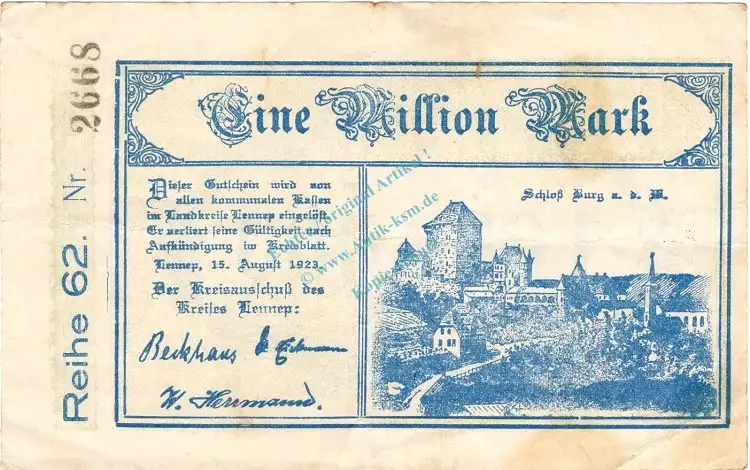 Reihe 62. Nr. 2668
Eine Million Mark
Dieser Gutschein wird von
allen kommunalen Kassen
im Landkreise Lennep eingelöst.
Er verliert seine Gültigkeit nach
Aufkündigung im Kreisblatt.
Lennep, 15. August 1923.
Der Kreisausschuß des
Kreises Lennep:
Beckhaus
W. Herrmann.
Schloß Burg a. d. W.
original Artikel !
© www.Antik-ksm.de